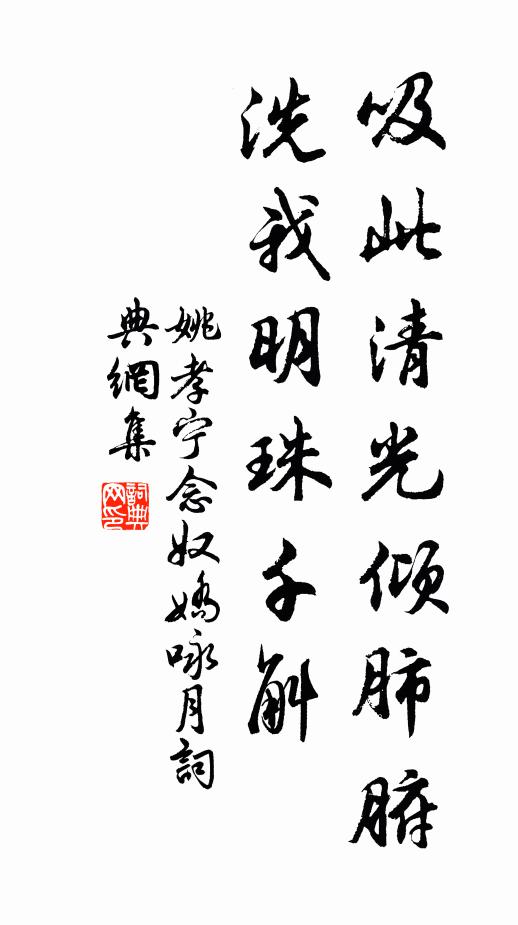 吸此清光倾肺腑
洗我明珠千斛
姚孝宁念奴娇咏月詞
典網集
詞典网印